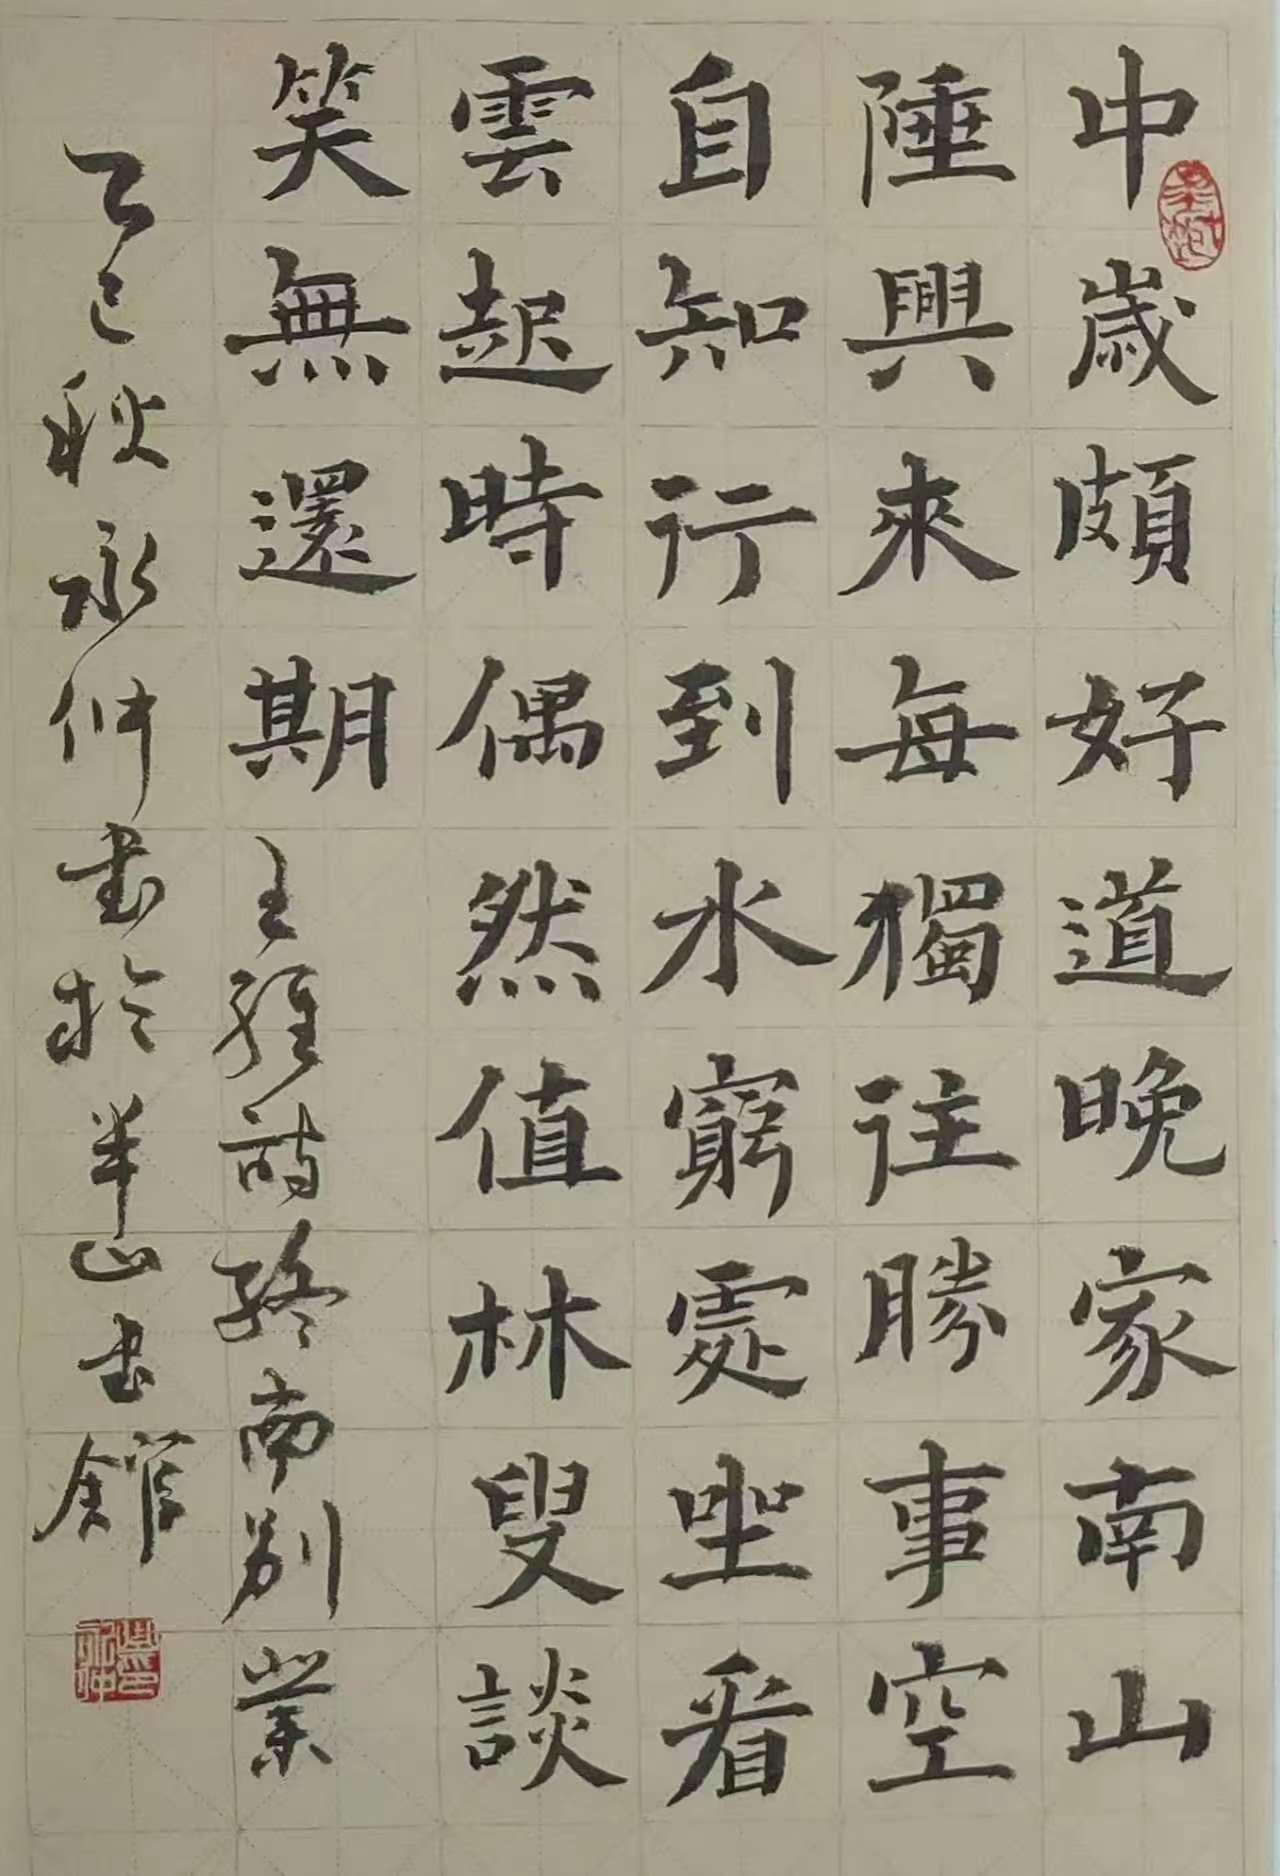 中歲頗好道晚家南山
陲興來每獨往勝事空
自知行到水窮處坐看
雲起時偶然值林叟談
笑無還期 王維詩終南別業
乙巳秋永仲書於半山書館